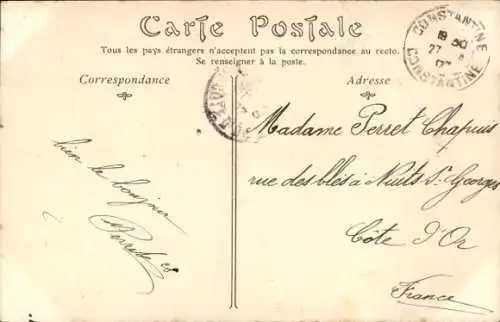 Carte Postale
Tous les pays étrangers n'acceptent pas la correspondance au recto.
Se renseigner à la poste.
Correspondance
Adresse
CONSTANTINE
27
CONSTANTINE
bien le bonjour
Madame Perret Chapuis
rue des blés à Nuits-St-Georges
Côte d'Or
France